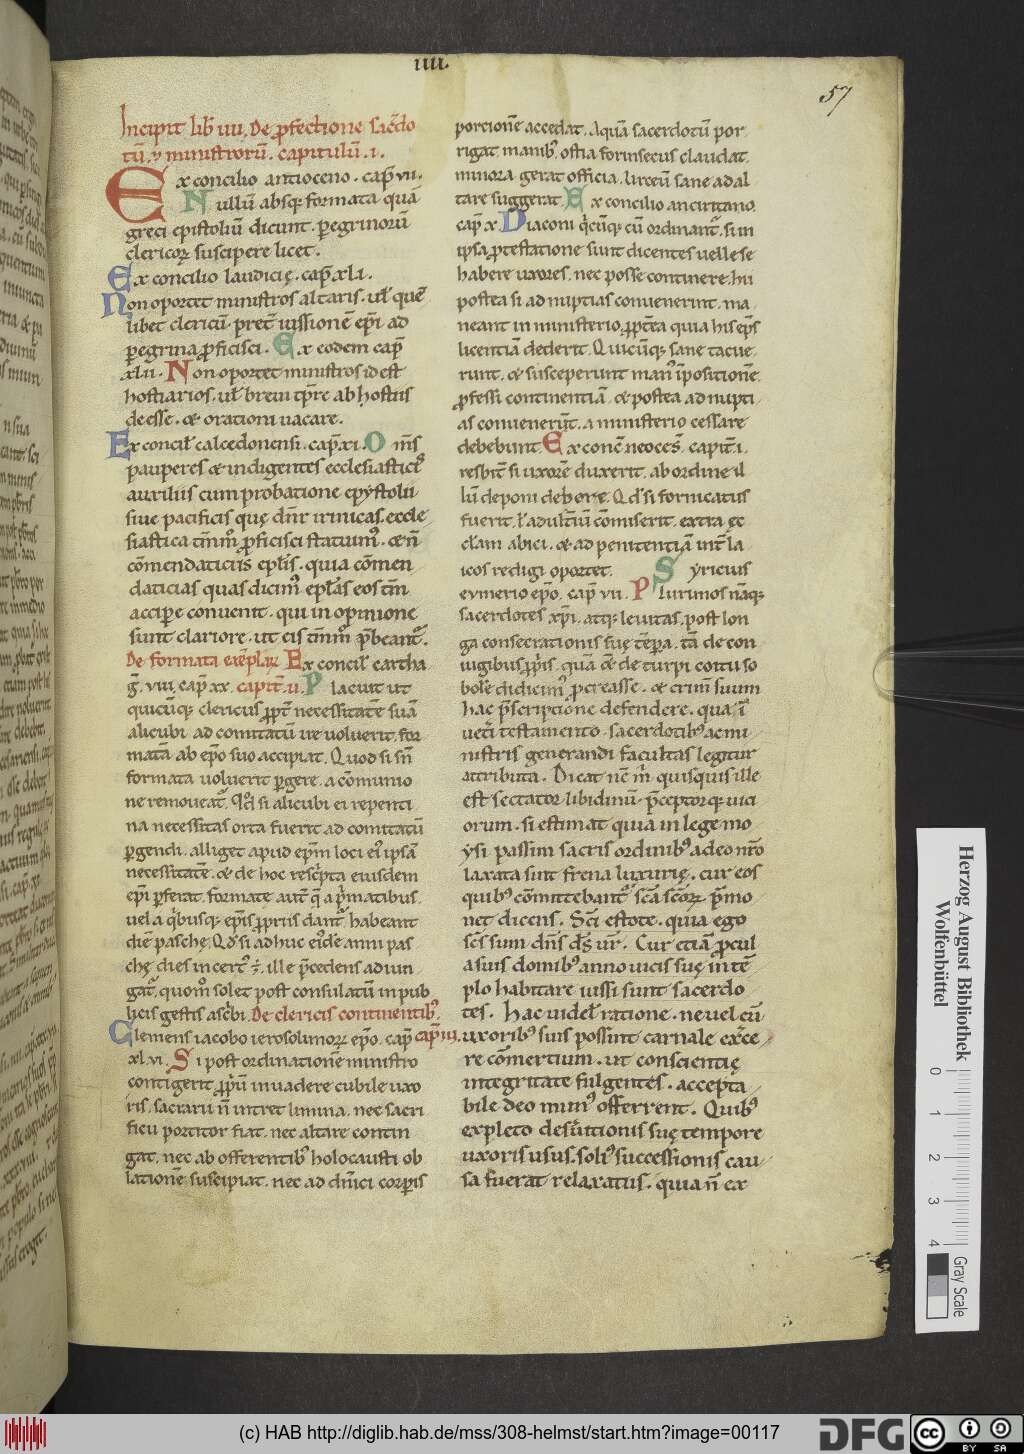 IIII.
57
Incipit lib̄ IIII. De ꝓfectione sac̄do
tū. ⁊ ministrorū. capitulū .I.
Ex concilio antioceno. cap̄ VII.
Nullū absq; formata quā
greci epistoliū dicunt. ꝑegrinorū
clericoꝝ suscipere licet.
Ex concilio laudicię. cap̄ XLI.
Non oportet ministros altaris. ul̄ quē
libet clericū. pret̄ iussionē ep̄i. ad
ꝑegrina ꝓficisci. Ex eodem cap̄
XLII. Non oportet ministros id est
hostiarios. ul̄ breui tp̄re ab hostiis
deesse. et orationi uacare.
Ex concil̄ calcedonensi. cap̄ XI. Om̄s
pauperes et indigentes ecclesiasticis
auxiliis cum probatione epystolii
siue pacificis quę dn̄r irinicas. eccle
siastica tm̄m ꝓficisci statuim᷒. et n̄
cōmendaticiis ep̄lis. quia cōmen
daticias quas dicim᷒ ep̄las eos tm̄
accipe conuenit. qui in opinione
sunt clariore. ut eis tm̄m p̄beant᷒.
De formata exēplar Ex concil̄ cartha
ḡ. VIII. cap̄ XX. capit̄. II. Placuit ut
quicūq; clericus ꝓpt̄ necessitatē suā
alicubi ad comitatū ire uoluerit. for
matā ab ep̄o suo accipiat. Quod si sn̄
formata uoluerit ꝑgere. a cōmunio
ne remoueat᷒. Qd̄ si alicubi ei repenti
na necessitas orta fuerit ad comitatū
ꝑgendi. alliget apud ep̄m loci ei᷒ ipsā
necessitatē. et de hoc resc̄pta eiusdem
ep̄i ꝑferat. formate aut̄ q̄ a p̄matibus.
uel a q̄busq; ep̄is ꝓpriis dant᷒. habeant
diē paschę. Qd̄ si adhuc ei᷒dē anni pas
chę dies incert᷒ ē. ille p̄cedens adiun
gat᷒. quom̄ solet post consulatū in pub
licis gestis asc̄bi. De clericis continentib᷒.
Clemens iacobo ierosolimoꝝ ep̄o. cap̄ cap̄ III.
XLVI. Si post ordinationē ministro
contigerit ꝓpriū inuadere cubile uxo
ris. sacrarii n̄ intret limina. nec sacri
ficii portitor fiat. nec altare contin
gat. nec ab offerentib᷒ holocausti ob
lationē suscipiat. nec ad dn̄ici corꝑis
porcionē accedat. Aquā sacerdotū por
rigat manib᷒. ostia forinsecus claudat.
minora gerat officia. Urceū sane ad al
tare suggerat. Ex concilio anciritano.
cap̄ X. Diaconi q̄cūq; cū ordinant᷒. si in
ipsa ꝓtestatione sunt dicentes uelle se
habere uxores. nec posse continere. hii
postea si ad nuptias conuenerint. ma
neant in ministerio. ꝓpt̄ea quia his ep̄s
licentiā dederit. Quicūq; sane tacue
runt. et susceperunt man᷒ īpositionē.
ꝓfessi continentiā. et postea ad nupti
as conuener̄t. a ministerio cessare
debebunt. Ex conc̄ neoces̄. capit̄. I.
Presbit̄ si uxorē duxerit. ab ordine il
lū deponi debere. Qd̄ si fornicatus
fuerit. l̄ adult̄iū cōmiserit. extra ęc
clam abici. et ad penitentiā int̄ la
icos redigi oportet. Syricius
eymerio ep̄o. cap̄ VII. Plurimos nāq;
sacerdotes xp̄i. atq; leuitas. post lon
ga consecrationis suę tēpora. tā de con
iugibus ꝓpriis. quā etiā de turpi coitu so
bolē didicim᷒ ꝓcreasse. et crim̄ suum
hac p̄scriptione defendere. quia ī
uet̄i testamento. sacerdotib᷒ ac mi
nistris generandi facultas legitur
attributa. Dicat nc̄ m̄. quisquis ille
est sectator libidinū. p̄ceptorq; uici
orum. si estimat quia in lege mo
ysi passim sacris ordinib᷒ a deo nr̄o
laxata sint frena luxurię. cur eos
quib᷒ cōmittebant᷒ scā scōꝝ. p̄mo
net dicens. Sc̄i estote. quia ego
sc̄s sum dn̄s ds̄ ur̄. Cur etiā ꝓcul
a suis domib᷒ anno uicis suę in tē
plo habitare iussi sunt sacerdo
tes. Hac uidel̄ ratione. ne uel cū
uxorib᷒ suis possint carnale exc̄e
re cōmertium. ut conscientię
integritate fulgentes. accepta
bile deo mun᷒ offerrent. Quib᷒
expleto deseruitionis suę tempore
uxoris usus. soli᷒ successionis cau
sa fuerat relaxatus. quia n̄ ex
(c) HAB http://diglib.hab.de/mss/308-helmst/start.htm?image=00117
DFG
cc BY SA
Herzog August Bibliothek
Wolfenbüttel
0 1 2 3 4
Gray Scale